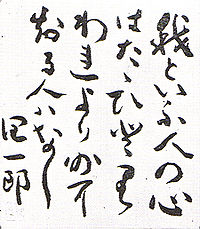 我といふ人の心
はたゝひとり
われより外に
知る人ハなし
潤一郎